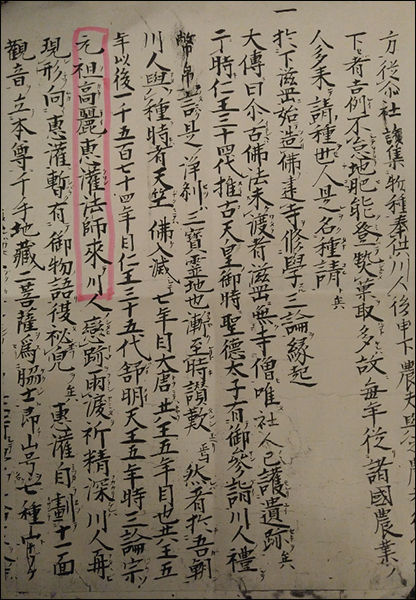 方従尒社護集物種奉供川人後申下農
下者吉例不怠地肥能登熟菓取多故毎年従諸國農業ノ
人多来請種世人是名種請矣
一
於下滋岳始造佛建寺修學三論縁起
大傳曰尒古佛法未渡者滋岳無寺僧唯社人已護遺跡矣
于時仁王三十四代推古天皇御時聖徳太子有御參詣川人禮
幣帛言是淨刹三寶霊地也漸至時讃歎焉然者於吾朝
川人與種時者天竺佛入滅七年目大唐丑王五年目也共王五
年以後一千五百七十四年目仁王三十五代舒明天王五年時三論宗
元祖高麗惠灌法師來川人戀跡雨淚祈精深川人再
現形向惠灌暫有御物語後祕兒矣惠灌自劃十一面
觀音立本尊千手地蔵二菩薩為脇士即山号七種山